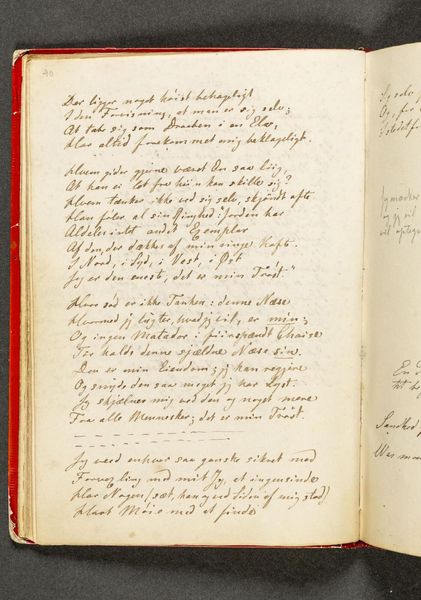 40
Der ligger noget høist behageligt
I den Forvisning, at man er sig selv;
At tabe sig som Draaben i en Elv,
Har altid forekommet mig beklageligt.
Hvem gider gjerne været Een saa liig,
At han ei let fra hiin kan skille sig?
Hvem tænker ikke ved sig selv, skjøndt ofte
Han føler al sin Ringhed: Jorden har
Aldeles intet andet Exemplar
Af den, der dækkes af min ringe Kofte.
I Nord, i Syd, i Vest, i Øst
Jeg er den eneste, det er min Trøst."
Hvor sød er ikke Tanken: denne Næse
Hvormed jeg lugter, hvad jeg vil, er min;
Og ingen Matador i fiirspændt Chaise
Tør kalde denne sjældne Næse sin.
Den er min Eiendom; jeg kan regjere
Og snyde den saa meget jeg har Lyst.
Jeg skjælnes mig ved den og noget mere
Fra alle Mennesker; det er min Trøst.
Jeg veed enhver saa ganske sikret mod
Forvexling med mit Jeg, at ingensinde
Har Nogen (sæt, han ved Siden af mig stod)
Havt Møie med at finde
Jeg selv
Og, for
istedetfor
Jeg mærker
og jeg vil
En
tit
Sandhed
Was